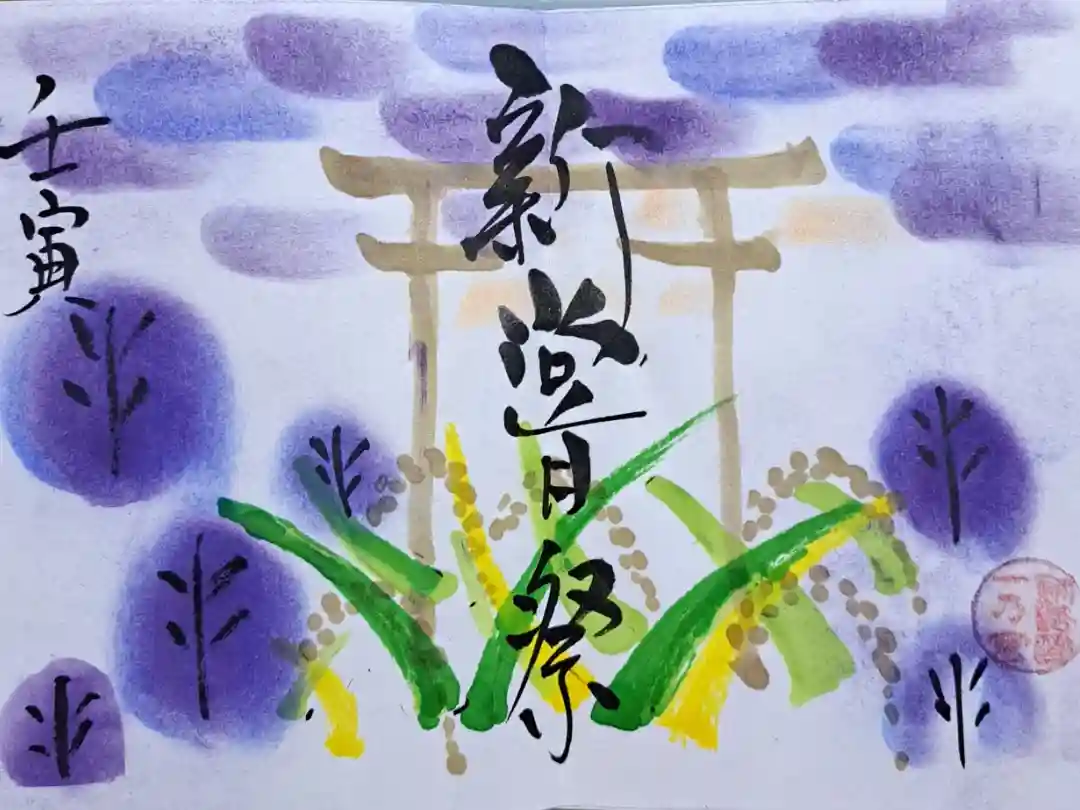 新嘗祭
壬寅